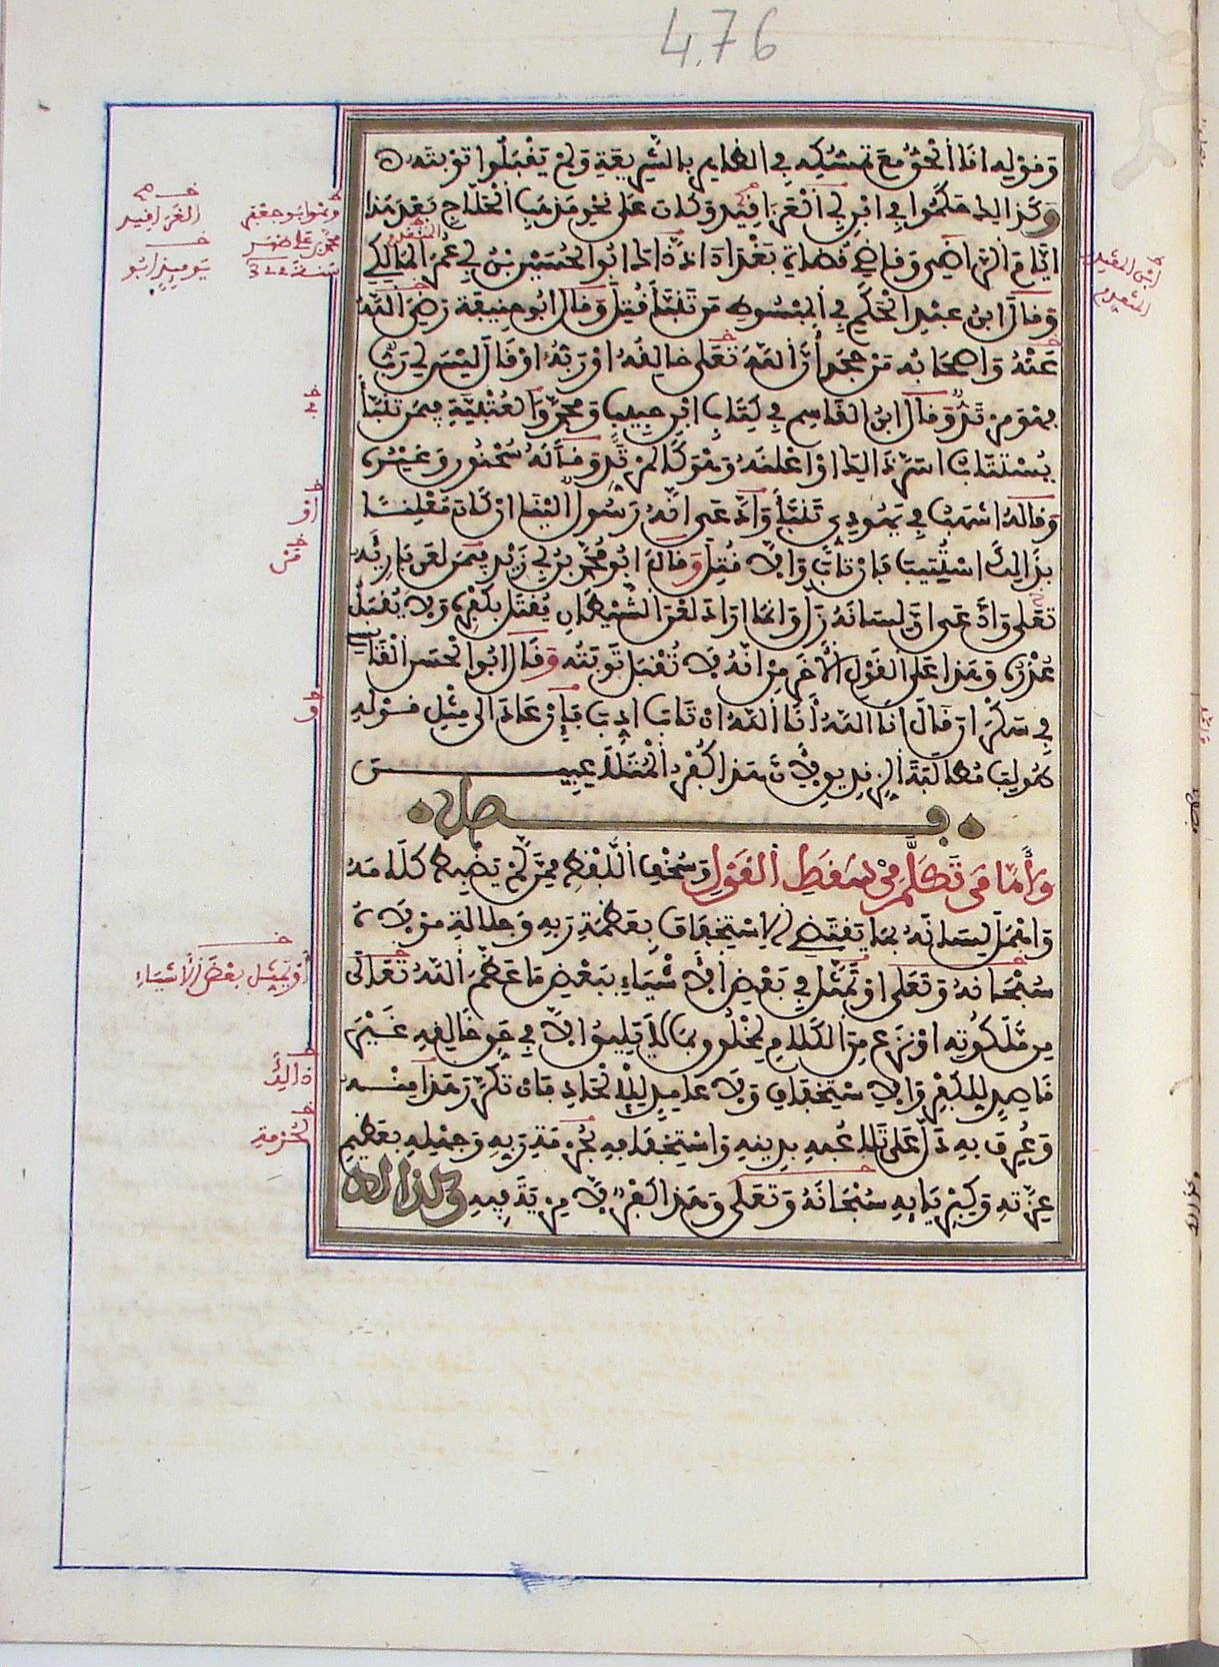 476
وقوله انا الحق مع تمسكه في الظاهر بالشريعة ولم يقبلوا توبته
وكذالك حكموا في ابن أبي العزافيد وكان على نحو مذهب الحلاج بعد هذا
ايام الراضي وقاضي قضاة بغداد يومئذ ابو الحسين بن أبي عمر المالكي
وقال ابن عبد الحكم في المبسوط من تنبأ قتل وقال ابو حنيفة رضي الله
عنه واصحابه من جحد أن الله تعلى خالقه او ربه او قال ليس لي رب
فهو مرتد وقال ابن القاسم في كتاب ابن حبيب ومحمد والعتبية فيمن تنبأ
يستتاب اسر ذالك او اعلنه وهو كالمرتد وقاله سحنون وغيره
وقاله اشهب في يهودي تنبأ وادعى انه رسول الينا ان كان معلنا
بذالك استتيب فان تاب والا قتل وقال ابو محمد بن أبي زيد فيمن لعن بارئه
تعلى وادعى ان لسانه زل وانما اراد لعن الشيطان يقتل بكفره ولا يقبل
عذره وهذا على القول الآخر من انه لا تقبل توبته وقال ابو الحسن القابسي
في سكران قال انا الله أنا الله ان تاب ادب فإن عاد الى مثل قوله
طولب مطالبة الزنديق لأن هذا كفر المتلاعبين
فصل
وأما من تكلم من سقط القول وسخف اللفظ ممن لم يضبط كلامه
واهمل لسانه بما يقتضي الاستخفاف بعظمة ربه وجلالة مولاه
سبحانه وتعلى او تمثل في بعض الأشياء ببعض ما عظم الله تعالى
من ملكوته او نزع من الكلام لمخلوق بما لا يليق الا في حق خالقه غير
قاصد للكفر والاستخفاف ولا عامد للإلحاد فان تكرر هذا منه
وعرف به دل على تلاعبه بدينه واستخفافه بحرمة ربه وجهله بعظيم
عزته وكبريايه سبحانه وتعلى وهذا كفر لا مرية فيه وكذالك
وهو ابو جعفر
محمد بن علي
سنة 322
العزافيد
يوميذ ابو
في
او
من
او
أو يمثل بعض الأشياء
ذالك
بحرمة